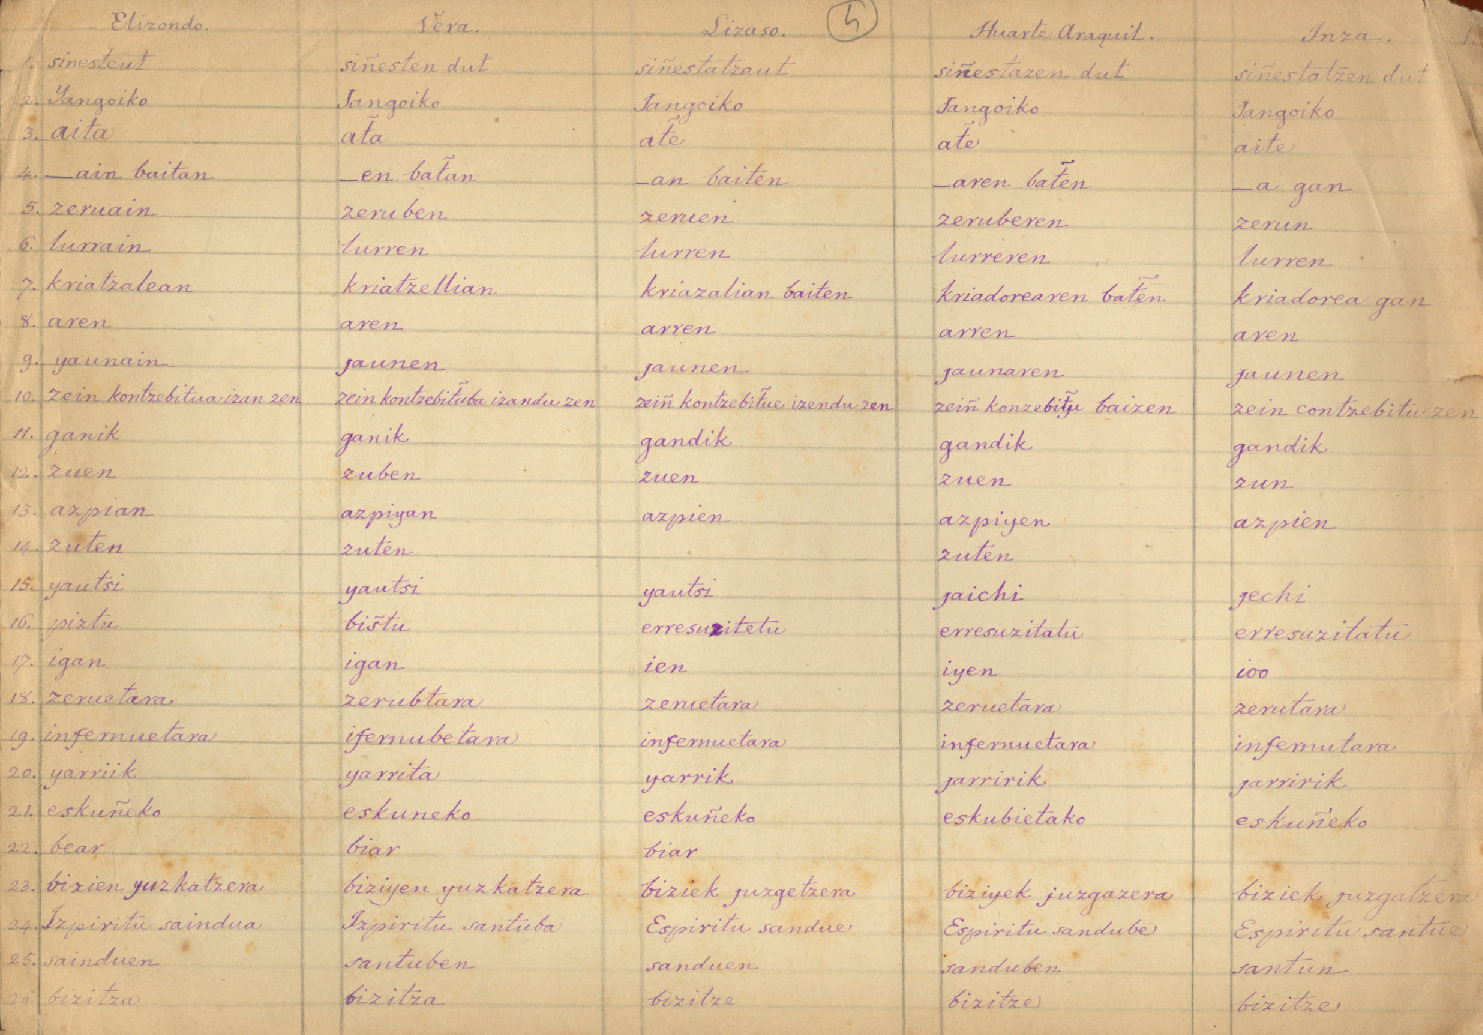 Elizondo. Vera. Lizaso. 5 Huarte Araquil. Inza.
1. sinesteut siñesten dut siñestatzaut siñestazen dut siñestatzen dut
2. Yangoiko Jangoiko Jangoiko Jangoiko Jangoiko
3. aita at̃a at̃e at̃e aite
4. _ain baitan _en bat̃an _an baiten _aren bat̃en _a gan
5. zeruain zeruben zeruen zeruberen zerun
6. lurrain lurren lurren lurreren lurren
7. kriatzalean kriatzellian kriazalian baiten kriadorearen bat̃en kriadorea gan
8. aren aren arren arren aren
9. yaunain jaunen jaunen jaunaren jaunen
10. zein kontzebitua izan zen zein kontzebit̃uba izandu zen zeiñ kontzebit̃ue izendu zen zeiñ konzebit̃u baizen zein contzebitu zen
11. ganik ganik gandik gandik gandik
12. zuen zuben zuen zuen zun
13. azpian azpiyan azpien azpiyen azpien
14. zuten zuten zuten
15. yautsi yautsi yautsi jaichi jechi
16. piztu bis̃tu erresuzitetu erresuzitatu erresuzitatu
17. igan igan ien iyen ioo
18. zeruetara zerubtara zeruetara zeruetara zerutara
19. infernuetara ifernubetara infernuetara infernuetara infernutara
20. yarriik yarrita yarrik jarririk jarririk
21. eskuñeko eskuneko eskuñeko eskubietako eskuñeko
22. bear biar biar
23. bizien yuzkatzera biziyen yuzkatzera biziek juzgetzera biziyek juzgazera biziek juzgatzera
24. Izpiritu saindua Izpiritu santuba Espiritu sandue Espiritu sandube Espiritu santue
25. sainduen santuben sanduen sanduben santun
26. bizitza bizitza bizitze bizitze bizitze